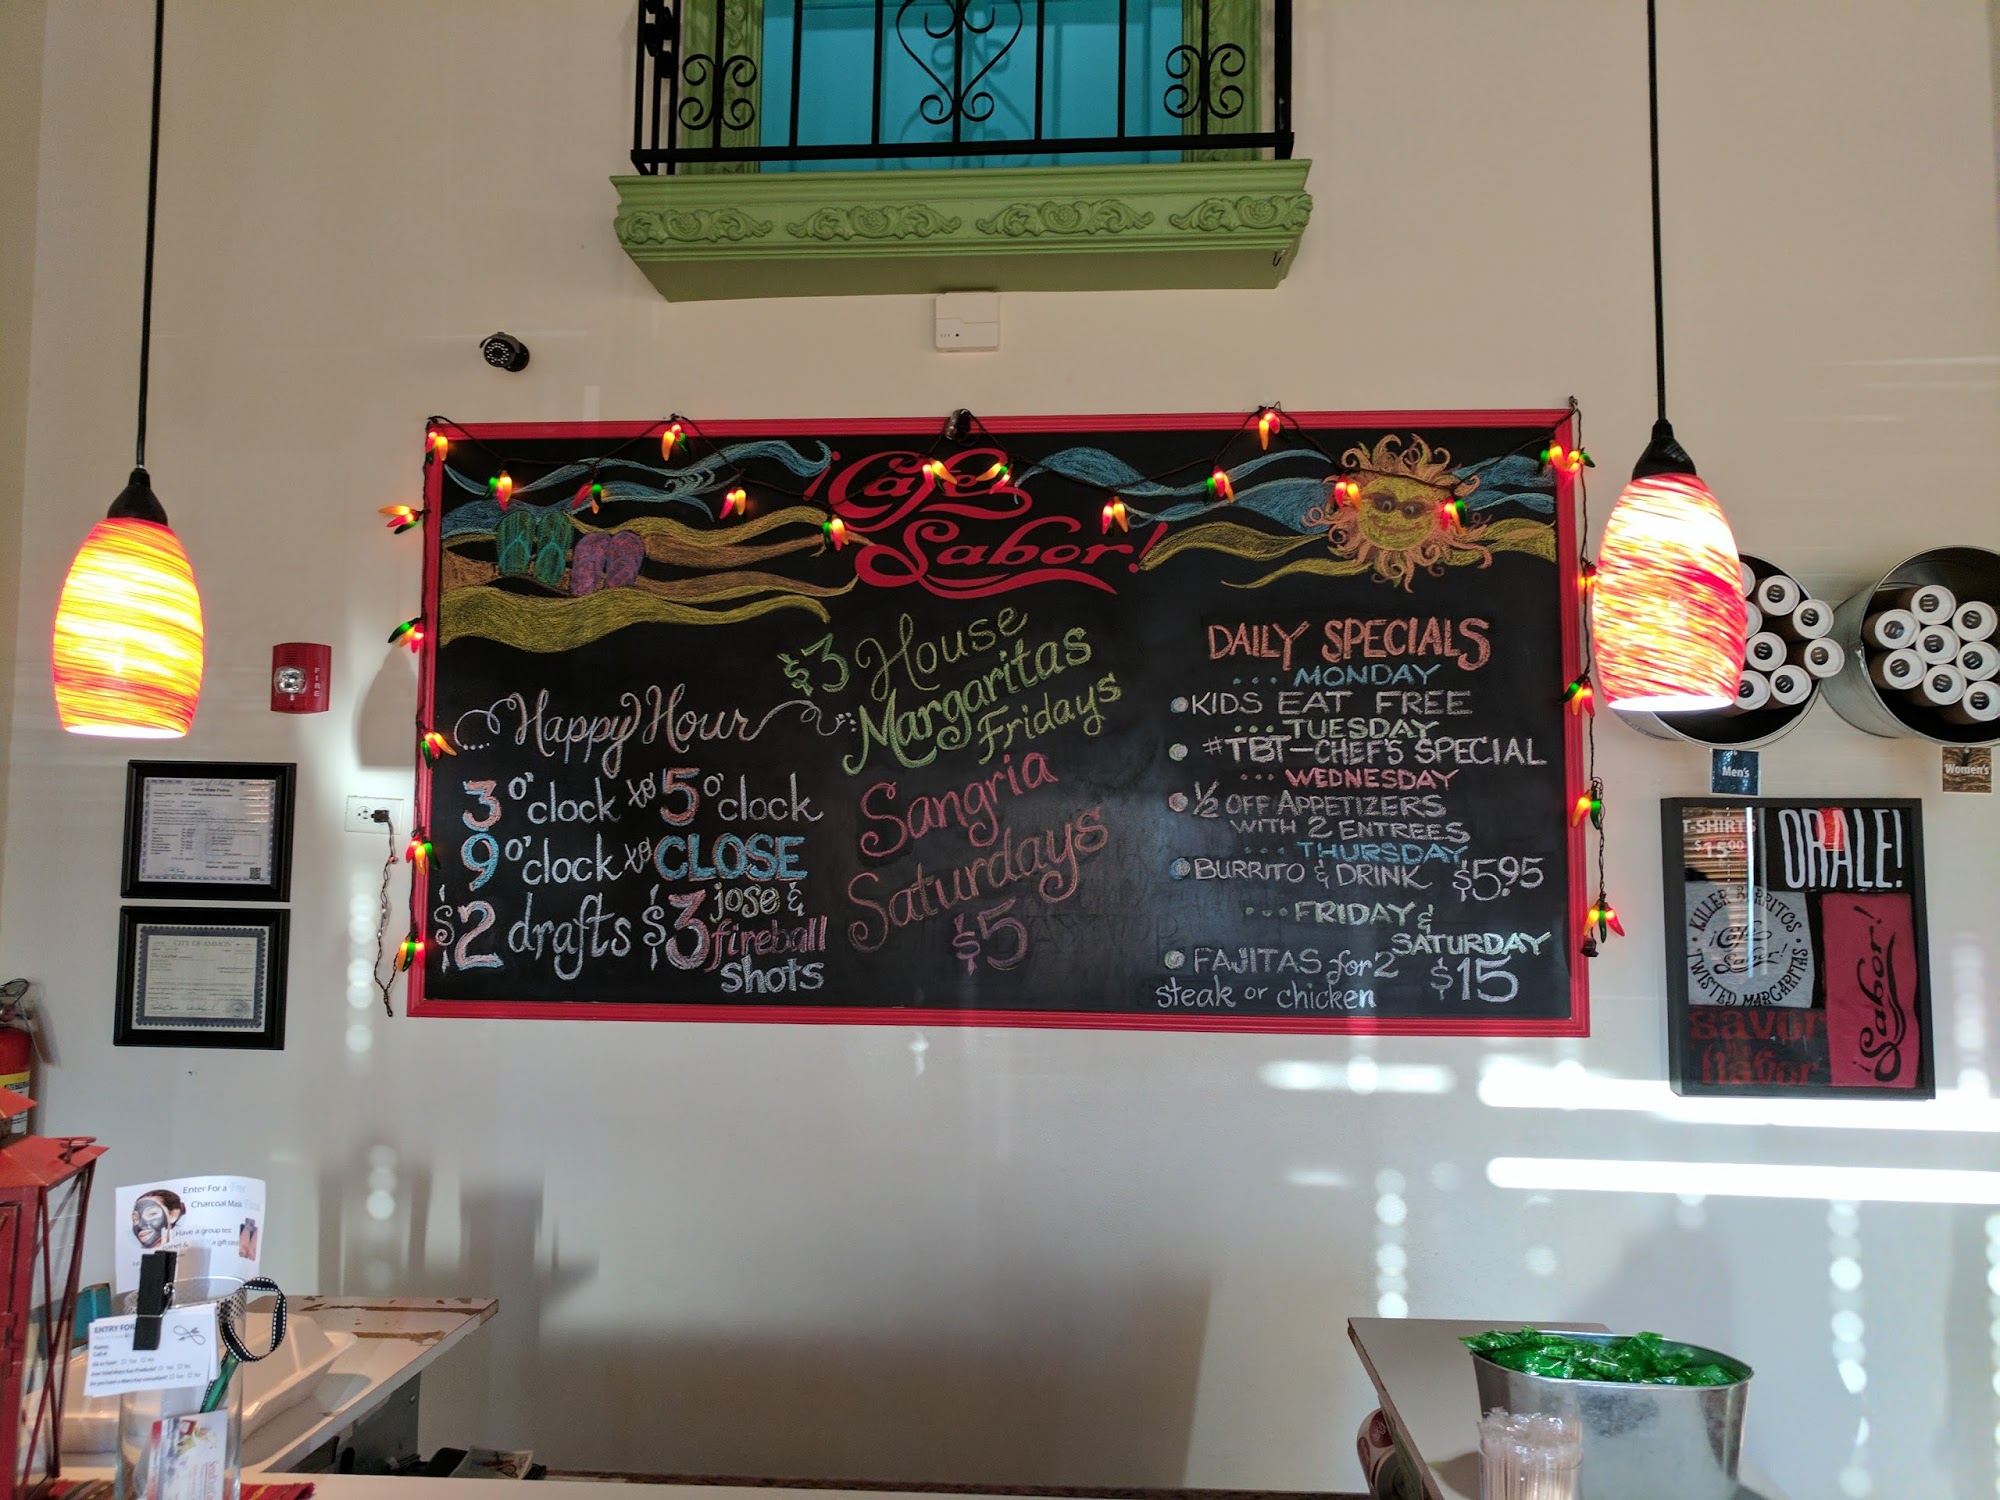 ¡Cafe
Sabor!
$3 House
Margaritas
Fridays
Sangria
Saturdays
$5
Happy Hour
3 o'clock to 5 o'clock
9 o'clock to CLOSE
$2 drafts $3 jose &
fireball
shots
DAILY SPECIALS
... MONDAY
KIDS EAT FREE
... TUESDAY
#TBT-CHEF'S SPECIAL
... WEDNESDAY
½ OFF APPETIZERS
WITH 2 ENTREES
... THURSDAY
BURRITO & DRINK $5.95
... FRIDAY &
SATURDAY
FAJITAS for 2 $15
steak or chicken
FIRE
Men's
Women's
T-SHIRTS
$15.00
ORALE!
KILLER BURRITOS
¡Cafe
Sabor!
TWISTED MARGARITAS
¡Sabor!
savor
flavor
CITY OF AMMON
Enter For a Free
Charcoal Mask
Have a group
& a gift card
ENTRY FOR
Name:
Call #